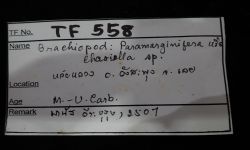 TF No. TF 558
Name Brachiopod: Paramarginifera หรือ
Chaoiella sp.
Location อ. วังสะพุง จ. เลย
Age M.-U. Carb.
Remark 2507